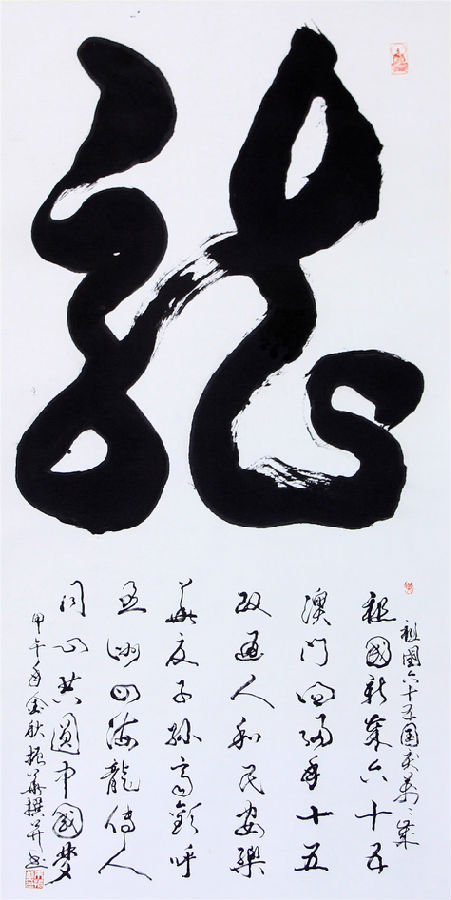 龍
祖國六十五国庆萬、歲
祖國新歲六十五
澳门回歸年十五
政通人和民安樂
華夏子孫高歡呼
五洲四海龍傳人
同心共圓中國梦
甲午年金秋振華撰并书